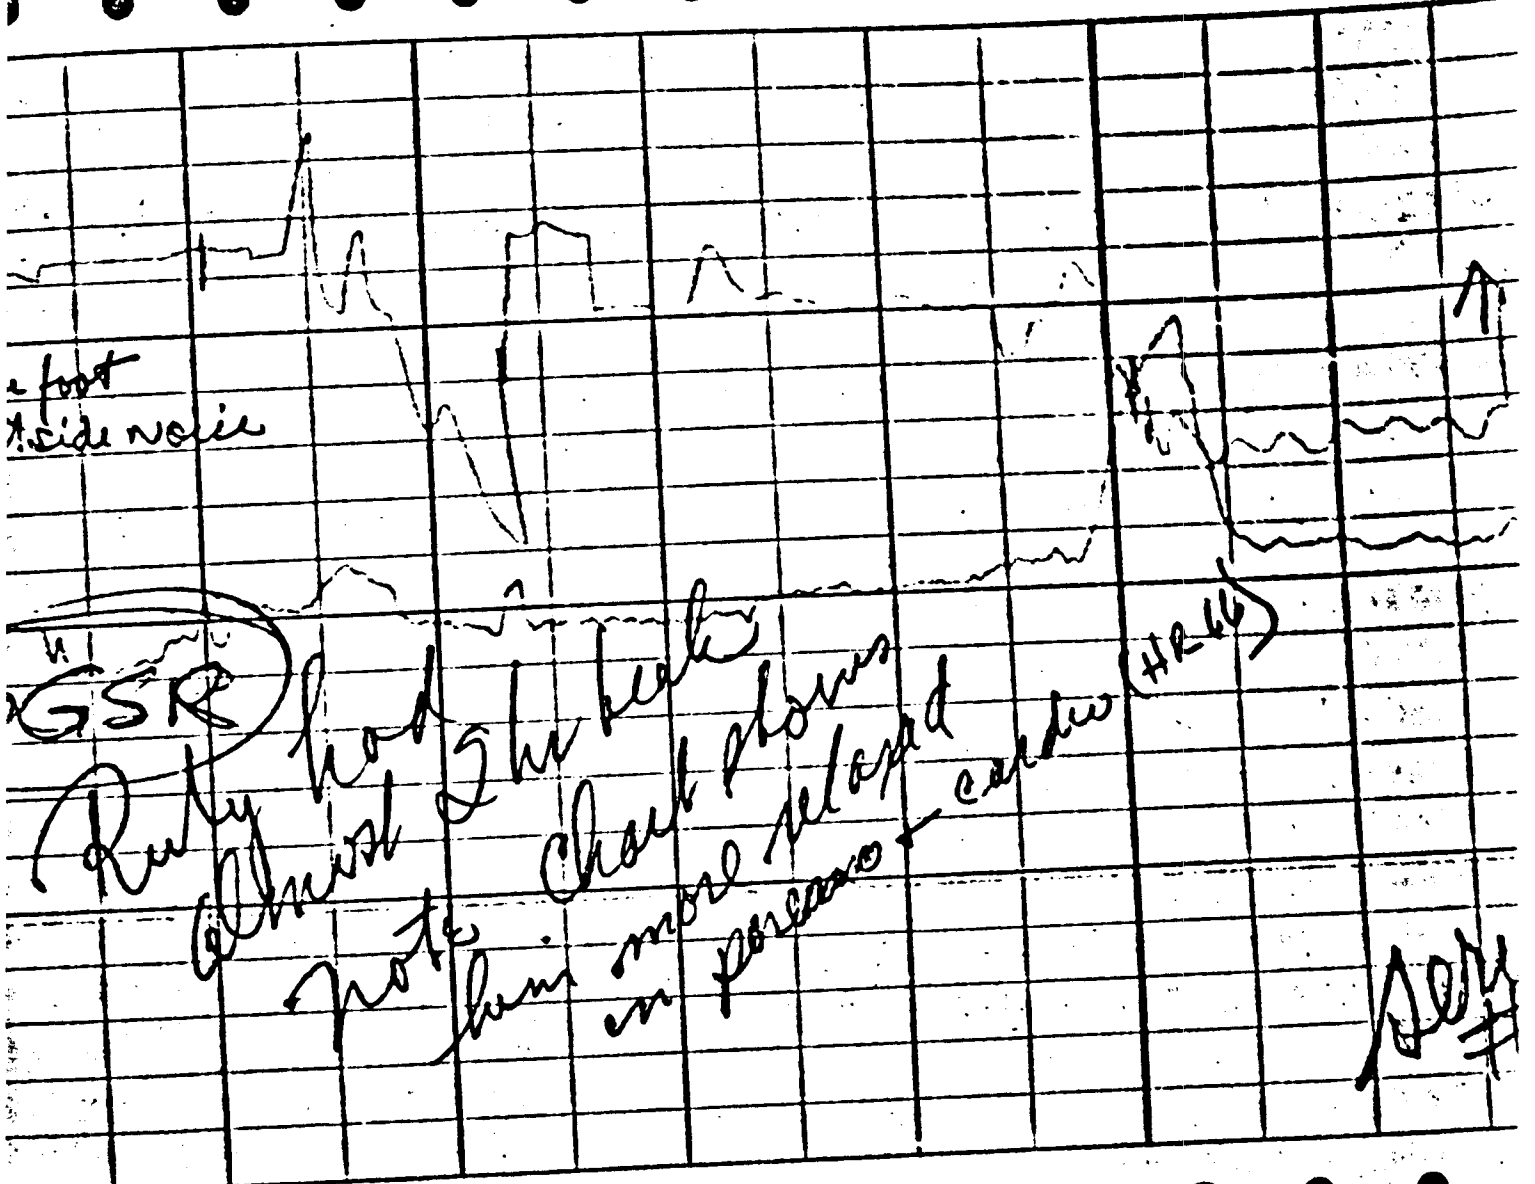 foot
side noise
GSR
Ruby had
almost 3 hr
note chart shows
him more relaxed
in
cardio (HR-66)
#